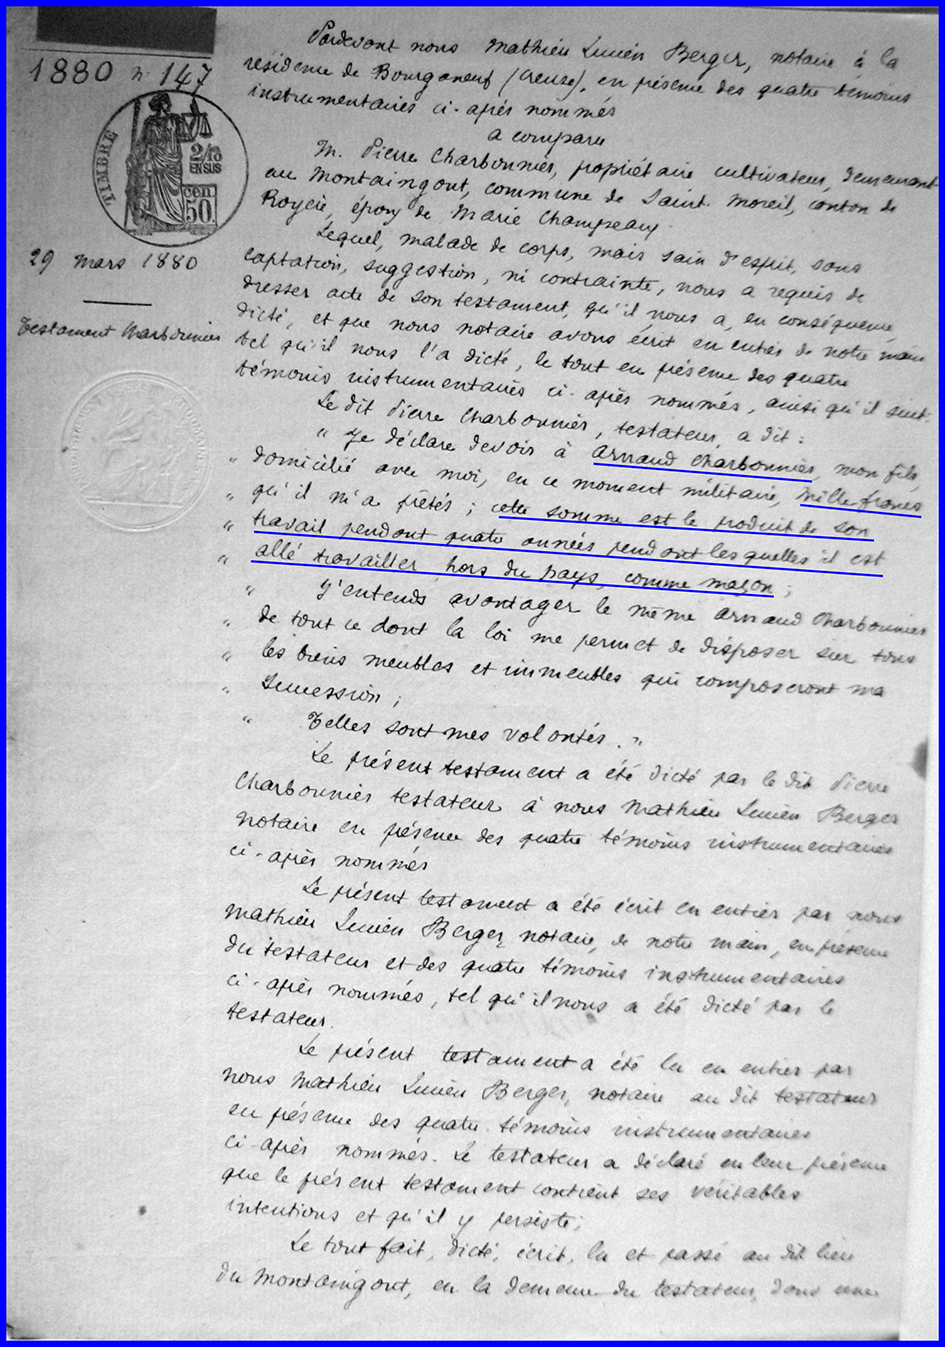 1880 n° 147
TIMBRE
2/10
EN SUS
50 CEN
29 mars 1880
Testament Charbonnier
Pardevant nous Mathieu Lucien Berger, notaire à la
résidence de Bourganeuf (Creuse), en présence des quatre témoins
instrumentaires ci-après nommés
a comparu
M. Pierre Charbonnier, propriétaire cultivateur, demeurant
au Montaingout, commune de Saint-Moreil, canton de
Royère, époux de Marie Champeaux.
Lequel, malade de corps, mais sain d'esprit, sans
captation, suggestion, ni contrainte, nous a requis de
dresser acte de son testament, qu'il nous a, en conséquence,
dicté, et que nous notaire avons écrit en entier de notre main
tel qu'il nous l'a dicté, le tout en présence des quatre
témoins instrumentaires ci-après nommés, ainsi qu'il suit:
Le dit Pierre Charbonnier, testateur, a dit:
" Je déclare devoir à Arnaud Charbonnier, mon fils,
" domicilié avec moi, en ce moment militaire, mille francs
" qu'il m'a prêtés; cette somme est le produit de son
" travail pendant quatre années pendant lesquelles il est
" allé travailler hors du pays, comme maçon;
" J'entends avantager le même Arnaud Charbonnier
" de tout ce dont la loi me permet de disposer sur tous
" les biens meubles et immeubles qui composeront ma
" succession;
" Telles sont mes volontés. "
Le présent testament a été dicté par le dit Pierre
Charbonnier testateur à nous Mathieu Lucien Berger
notaire en présence des quatre témoins instrumentaires
ci-après nommés
Le présent testament a été écrit en entier par nous
Mathieu Lucien Berger, notaire, de notre main, en présence
du testateur et des quatre témoins instrumentaires
ci-après nommés, tel qu'il nous a été dicté par le
testateur.
Le présent testament a été lu en entier par
nous Mathieu Lucien Berger, notaire au dit testateur
en présence des quatre témoins instrumentaires
ci-après nommés. Le testateur a déclaré en leur présence
que le présent testament contient ses véritables
intentions et qu'il y persiste;
Le tout fait, dicté, écrit, lu et passé au dit lieu
du Montaingout, en la demeure du testateur, dans une